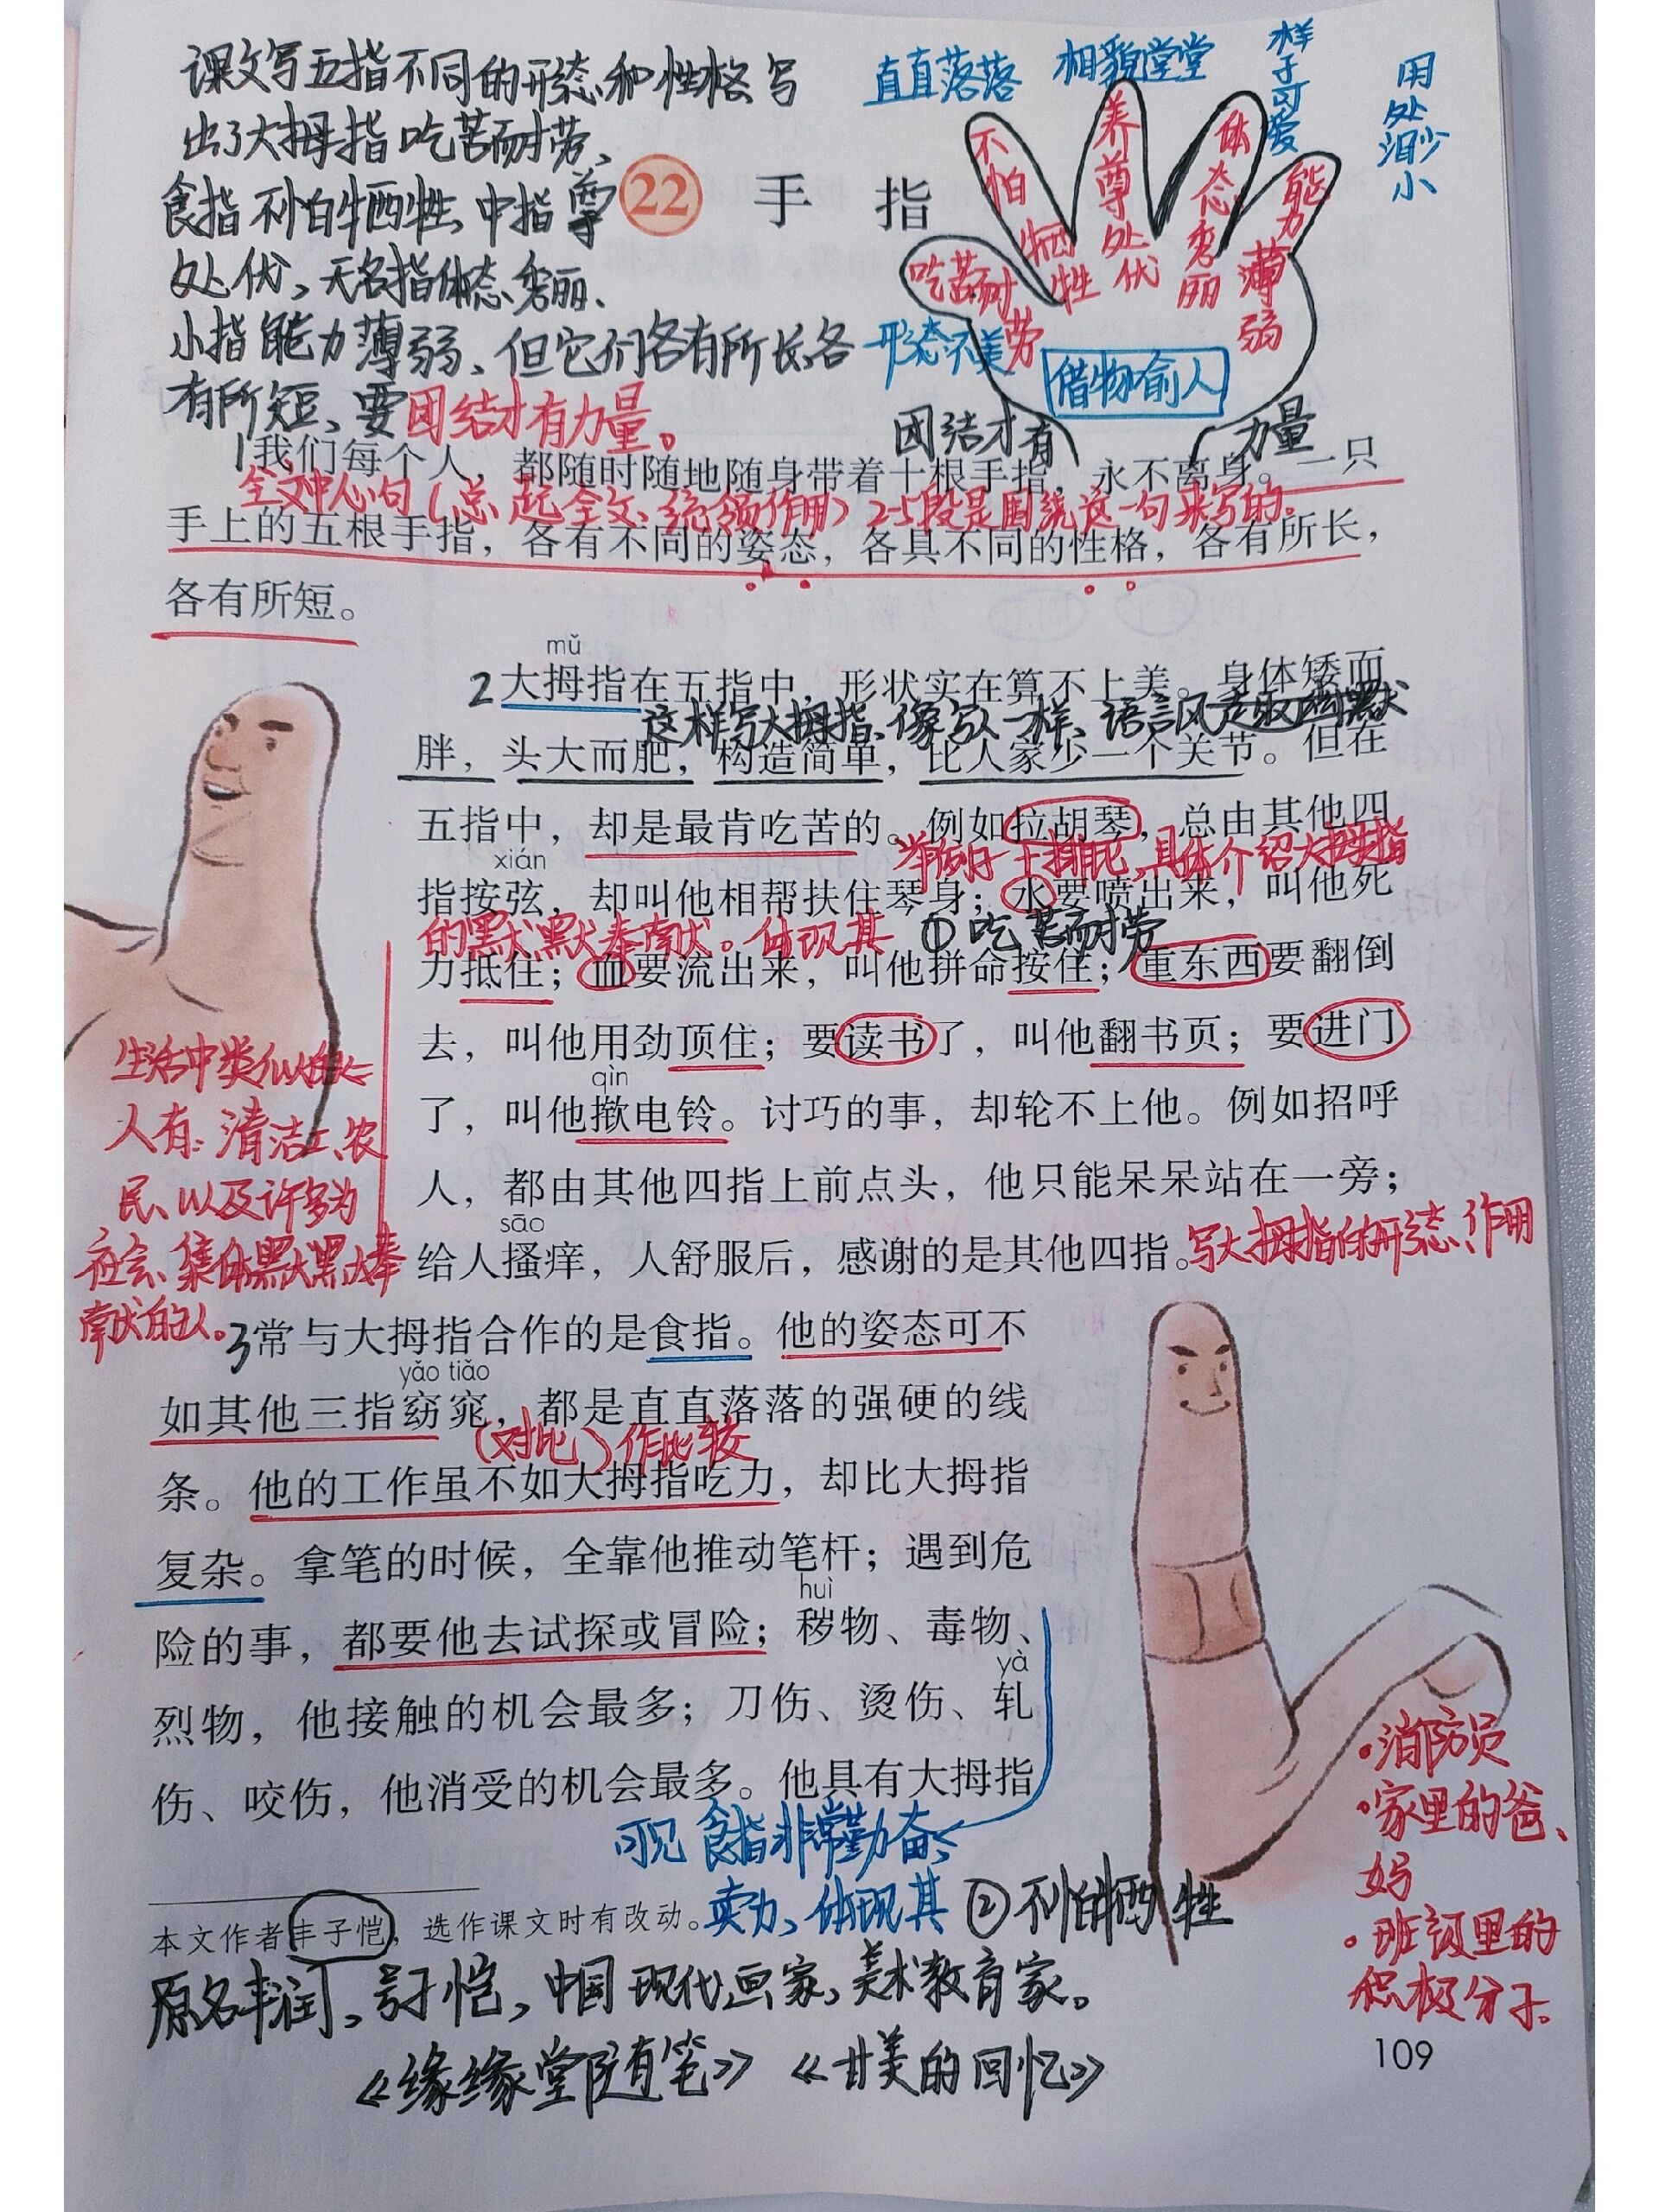 课文写五指不同的形态和性格写
出了大拇指吃苦耐劳、
食指不怕牺牲、中指尊
处优、无名指体态秀丽、
小指能力薄弱、但它们各有所长各
有所短、要团结才有力量。
22 手 指
直直落落
相貌堂堂
样子可爱
用处渺小
不怕牺牲
养尊处优
体态秀丽
能力薄弱
吃苦耐劳
形态不美
借物喻人
团结才有
力量
1我们每个人,都随时随地随身带着十根手指,永不离身。一只
全文中心句(总起全文、统领作用)2-5段是围绕这一句来写的。
手上的五根手指,各有不同的姿态,各具不同的性格,各有所长,
各有所短。
mǔ
2大拇指在五指中,形状实在算不上美。身体矮而
这样写大拇指、像写人一样、语言风趣幽默
胖,头大而肥,构造简单,比人家少一个关节。但在
五指中,却是最肯吃苦的。例如拉胡琴,总由其他四
举例子+排比,具体介绍大拇指
xián
指按弦,却叫他相帮扶住琴身;水要喷出来,叫他死
的默默奉献。体现其 ①吃苦而耐劳
力抵住;血要流出来,叫他拼命按住;重东西要翻倒
去,叫他用劲顶住;要读书了,叫他翻书页;要进门
qìn
了,叫他揿电铃。讨巧的事,却轮不上他。例如招呼
人,都由其他四指上前点头,他只能呆呆站在一旁;
sāo
给人搔痒,人舒服后,感谢的是其他四指。
写大拇指的形态、作用
生活中类似的
人有:清洁工、农
民、以及许多为
社会、集体默默奉
献的人。
3常与大拇指合作的是食指。他的姿态可不
yǎo tiǎo
如其他三指窈窕,都是直直落落的强硬的线
(对比)作比较
条。他的工作虽不如大拇指吃力,却比大拇指
复杂。拿笔的时候,全靠他推动笔杆;遇到危
huì
险的事,都要他去试探或冒险;秽物、毒物、
yà
烈物,他接触的机会最多;刀伤、烫伤、轧
伤、咬伤,他消受的机会最多。他具有大拇指
可见 食指非常勤奋、
卖力、体现其 ②不怕牺牲
·消防员
·家里的爸、
妈
·班级里的
积极分子。
本文作者丰子恺,选作课文时有改动。
原名丰润、号子恺,中国现代画家,美术教育家。
《缘缘堂随笔》 《甘美的回忆》
109